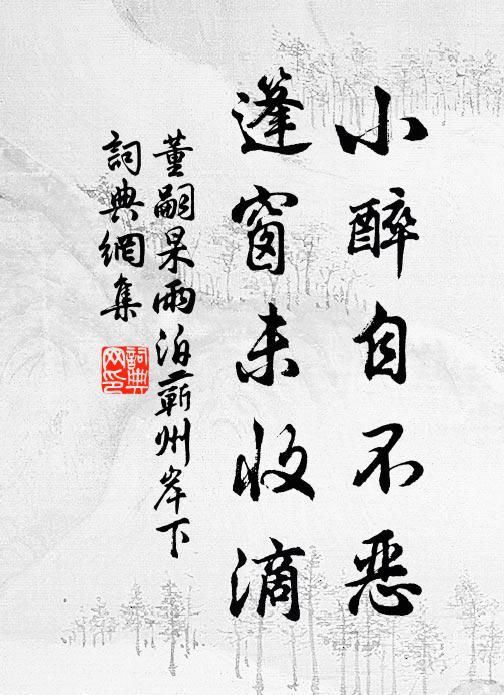 小醉自不惡
篷窗未收滴
董嗣杲雨泊蘄州岸下
詞典網集
詞典网印